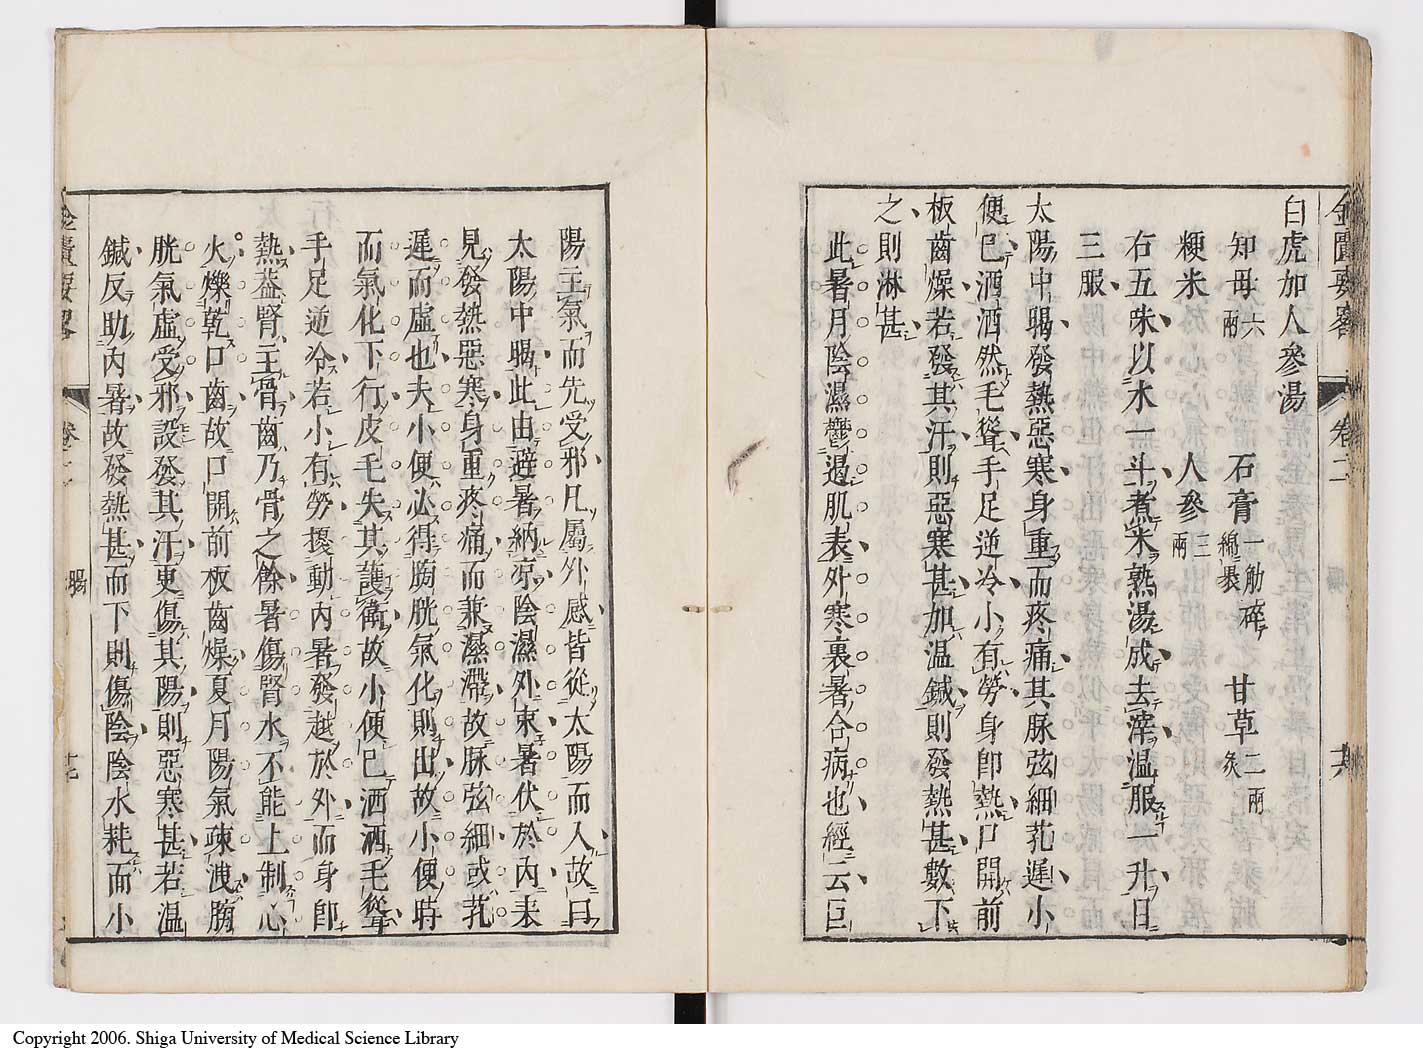 金匱要畧 卷二 共
白虎加人參湯
知母六兩 石膏一觔碎綿裹 甘草二兩炙
粳米 人參三兩
右五味以水一斗煮米熟湯成去滓温服一升日
三服
太陽中暍發熱惡寒身重而疼痛其脉弦細芤遲小
便已洒洒然毛聳手足逆冷小有勞身卽熱口開前
板齒燥若發其汗則惡寒甚加温鍼則發熱甚數下
之則淋甚
此暑月陰濕鬱遏肌表外寒裏暑合病也經云巨
陽主氣而先受邪凡屬外感皆從太陽而入故曰
太陽中暍此由避暑納凉陰濕外束暑伏於内来
見發熱惡寒身重疼痛而兼濕滯故脉弦細或芤
遲而虛也夫小便必得胸胱氣化則出故小便時
而氣化下行皮毛失其護衛故小便已洒洒毛聳
手足逆冷若小有勞擾動内暑發越於外而身卽
熱葢腎主骨齒乃骨之餘暑傷腎水不能上制心
火爍乾口齒故口開前板齒燥夏月陽氣疎洩胸
胱氣虛受邪設發其汗更傷其陽則惡寒甚若温
鍼反助内暑故發熱甚而下則傷陰陰水耗而小
金匱要畧 卷二 暍 十七
Copyright 2006. Shiga University of Medical Science Library